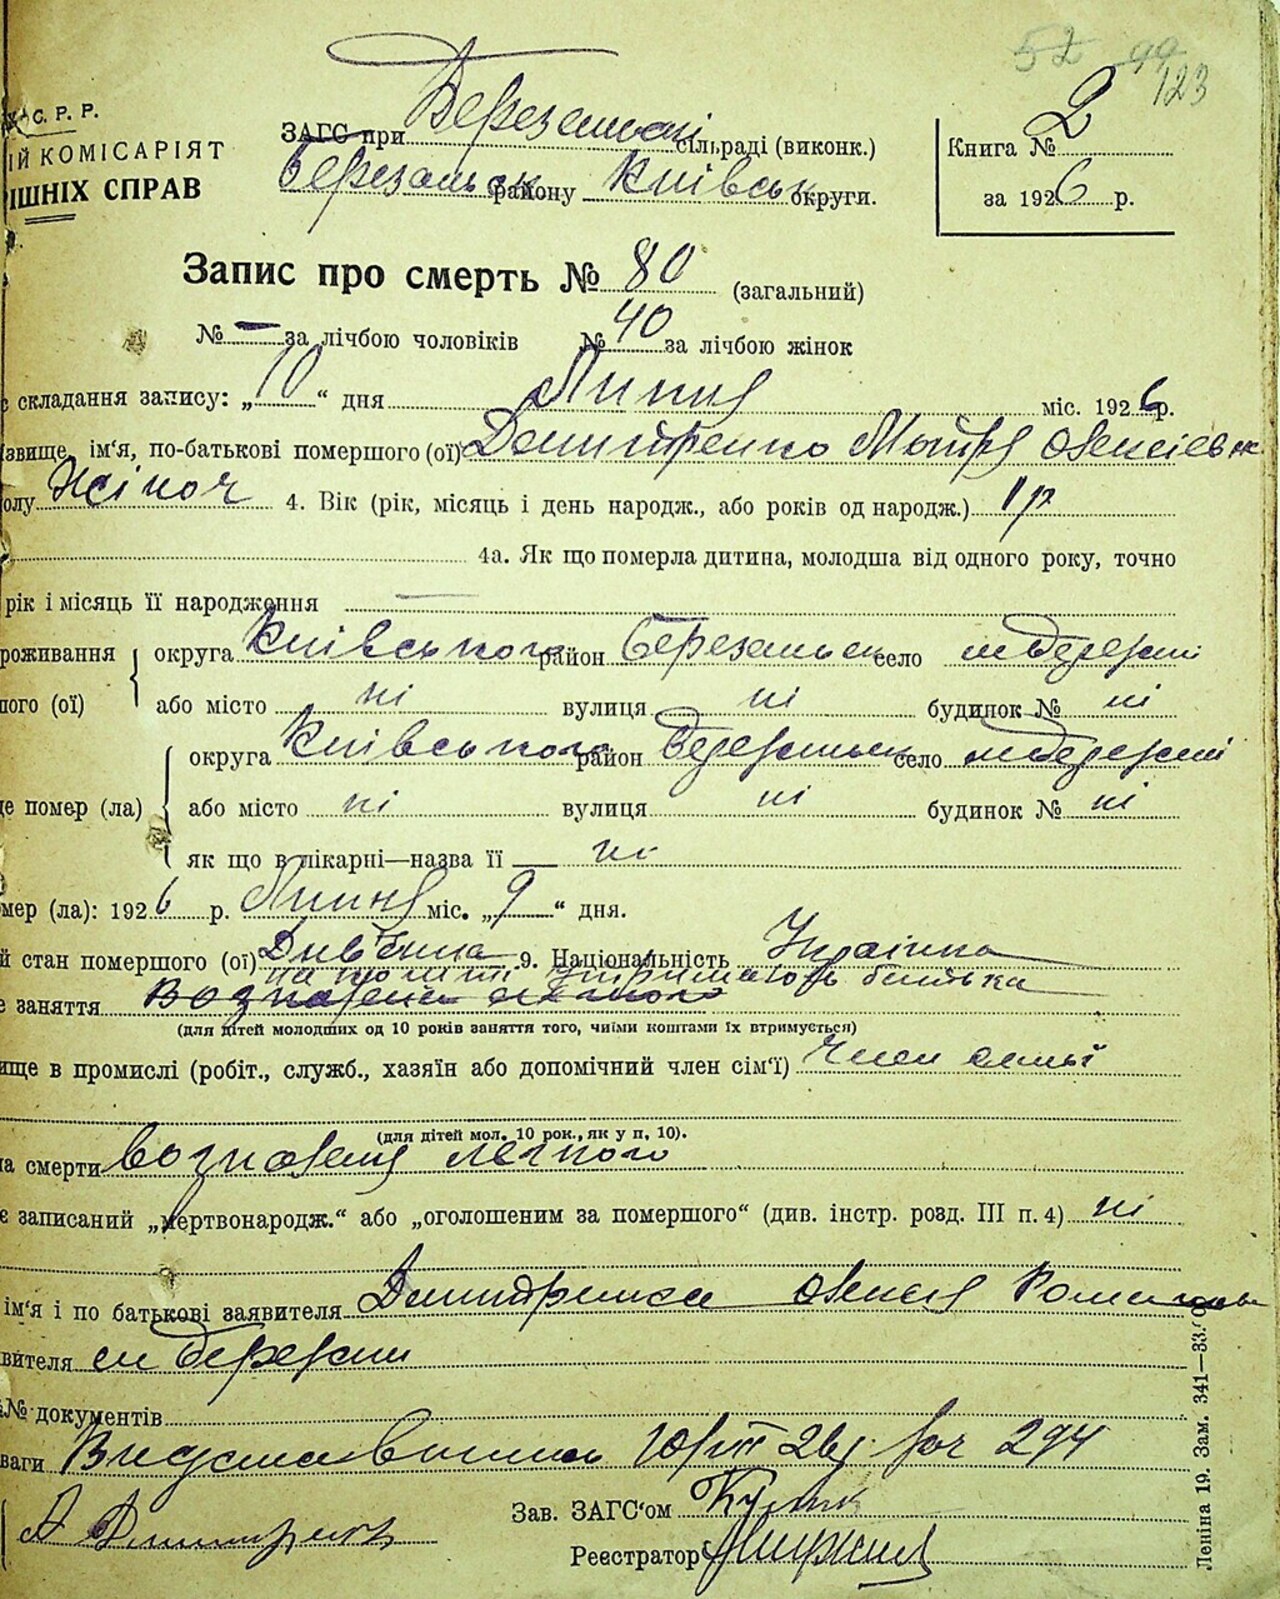 52 99
123
С. Р. Р.
ІЙ КОМІСАРІЯТ
ІШНІХ СПРАВ
ЗАГС при Березанській сільраді (виконк.)
Березанськ району Київськ округи.
Книга № 2
за 1926 р.
Запис про смерть № 80 (загальний)
№ — за лічбою чоловіків № 40 за лічбою жінок
складання запису: „10“ дня Липня міс. 1926 р.
звище, ім‘я, по-батькові помершого (ої) Дмитренко Мотря Олексіевн
олу Жіноч 4. Вік (рік, місяць і день народж., або років од народж.) 1 р
4а. Як що померла дитина, молодша від одного року, точно
рік і місяць її народження —
роживання округа Київського район Березанськ село м Березані
ного (ої) або місто ні вулиця ні будинок № ні
округа Київського район Березанськ село м Березані
де помер (ла) або місто ні вулиця ні будинок № ні
як що в лікарні—назва її — ні
мер (ла): 1926 р. Липня міс. „9“ дня.
й стан помершого (ої) Дивчина 9. Національність Українка
на утримані батька
е заняття
(для дітей молодших од 10 років заняття того, чиїми коштами їх втримується)
ище в промислі (робіт., служб., хазяїн або допомічний член сім‘ї) Член семьї
(для дітей мол. 10 рок., як у п. 10).
на смерти легкого
є записаний „мертвонародж.“ або „оголошеним за помершого“ (див. інстр. розд. III п. 4) ні
ім‘я і по батькові заявителя Дмитренко Олексій Романов
вителя м Березань
№№ документів
ваги 294
Зав. ЗАГС‘ом
Реєстратор
Леніна 19. Зам. 341—33.0